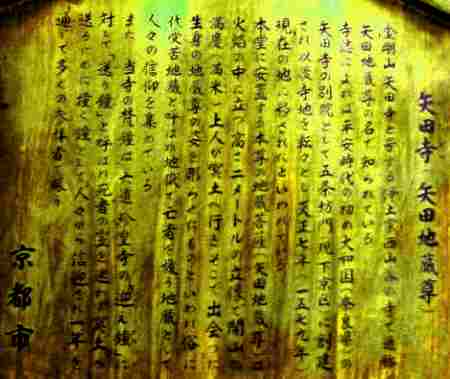 矢田寺（矢田地蔵尊）
金剛山矢田寺と号する浄土宗西山派の寺で通称
矢田地蔵尊の名で知られている
寺伝によれば平安時代の初め大和国（奈良県）の
矢田寺の別院として五条坊門（現下京区）に創建
され以後寺地を転々とし天正七年（一五七九年）
現在の地に移されたといわれている
本堂に安置する本尊の地蔵菩薩（矢田地蔵）は
火焔の中に立つ高さ二メートルの立像で開山の
満慶（満米）上人が冥土へ行きそこで出会った
生身の地蔵尊の姿を彫ったものといわれ俗に
代受苦地蔵と呼ばれ地獄で亡者を救う地蔵として
人々の信仰を集めている
また当寺の梵鐘は六道珍皇寺の「迎え鐘」に
対して「送り鐘」と呼ばれ死者の霊を迷わず冥土へ
送るために撞く鐘として人々から信仰され一年を
通じて多くの参拝者が
京都市